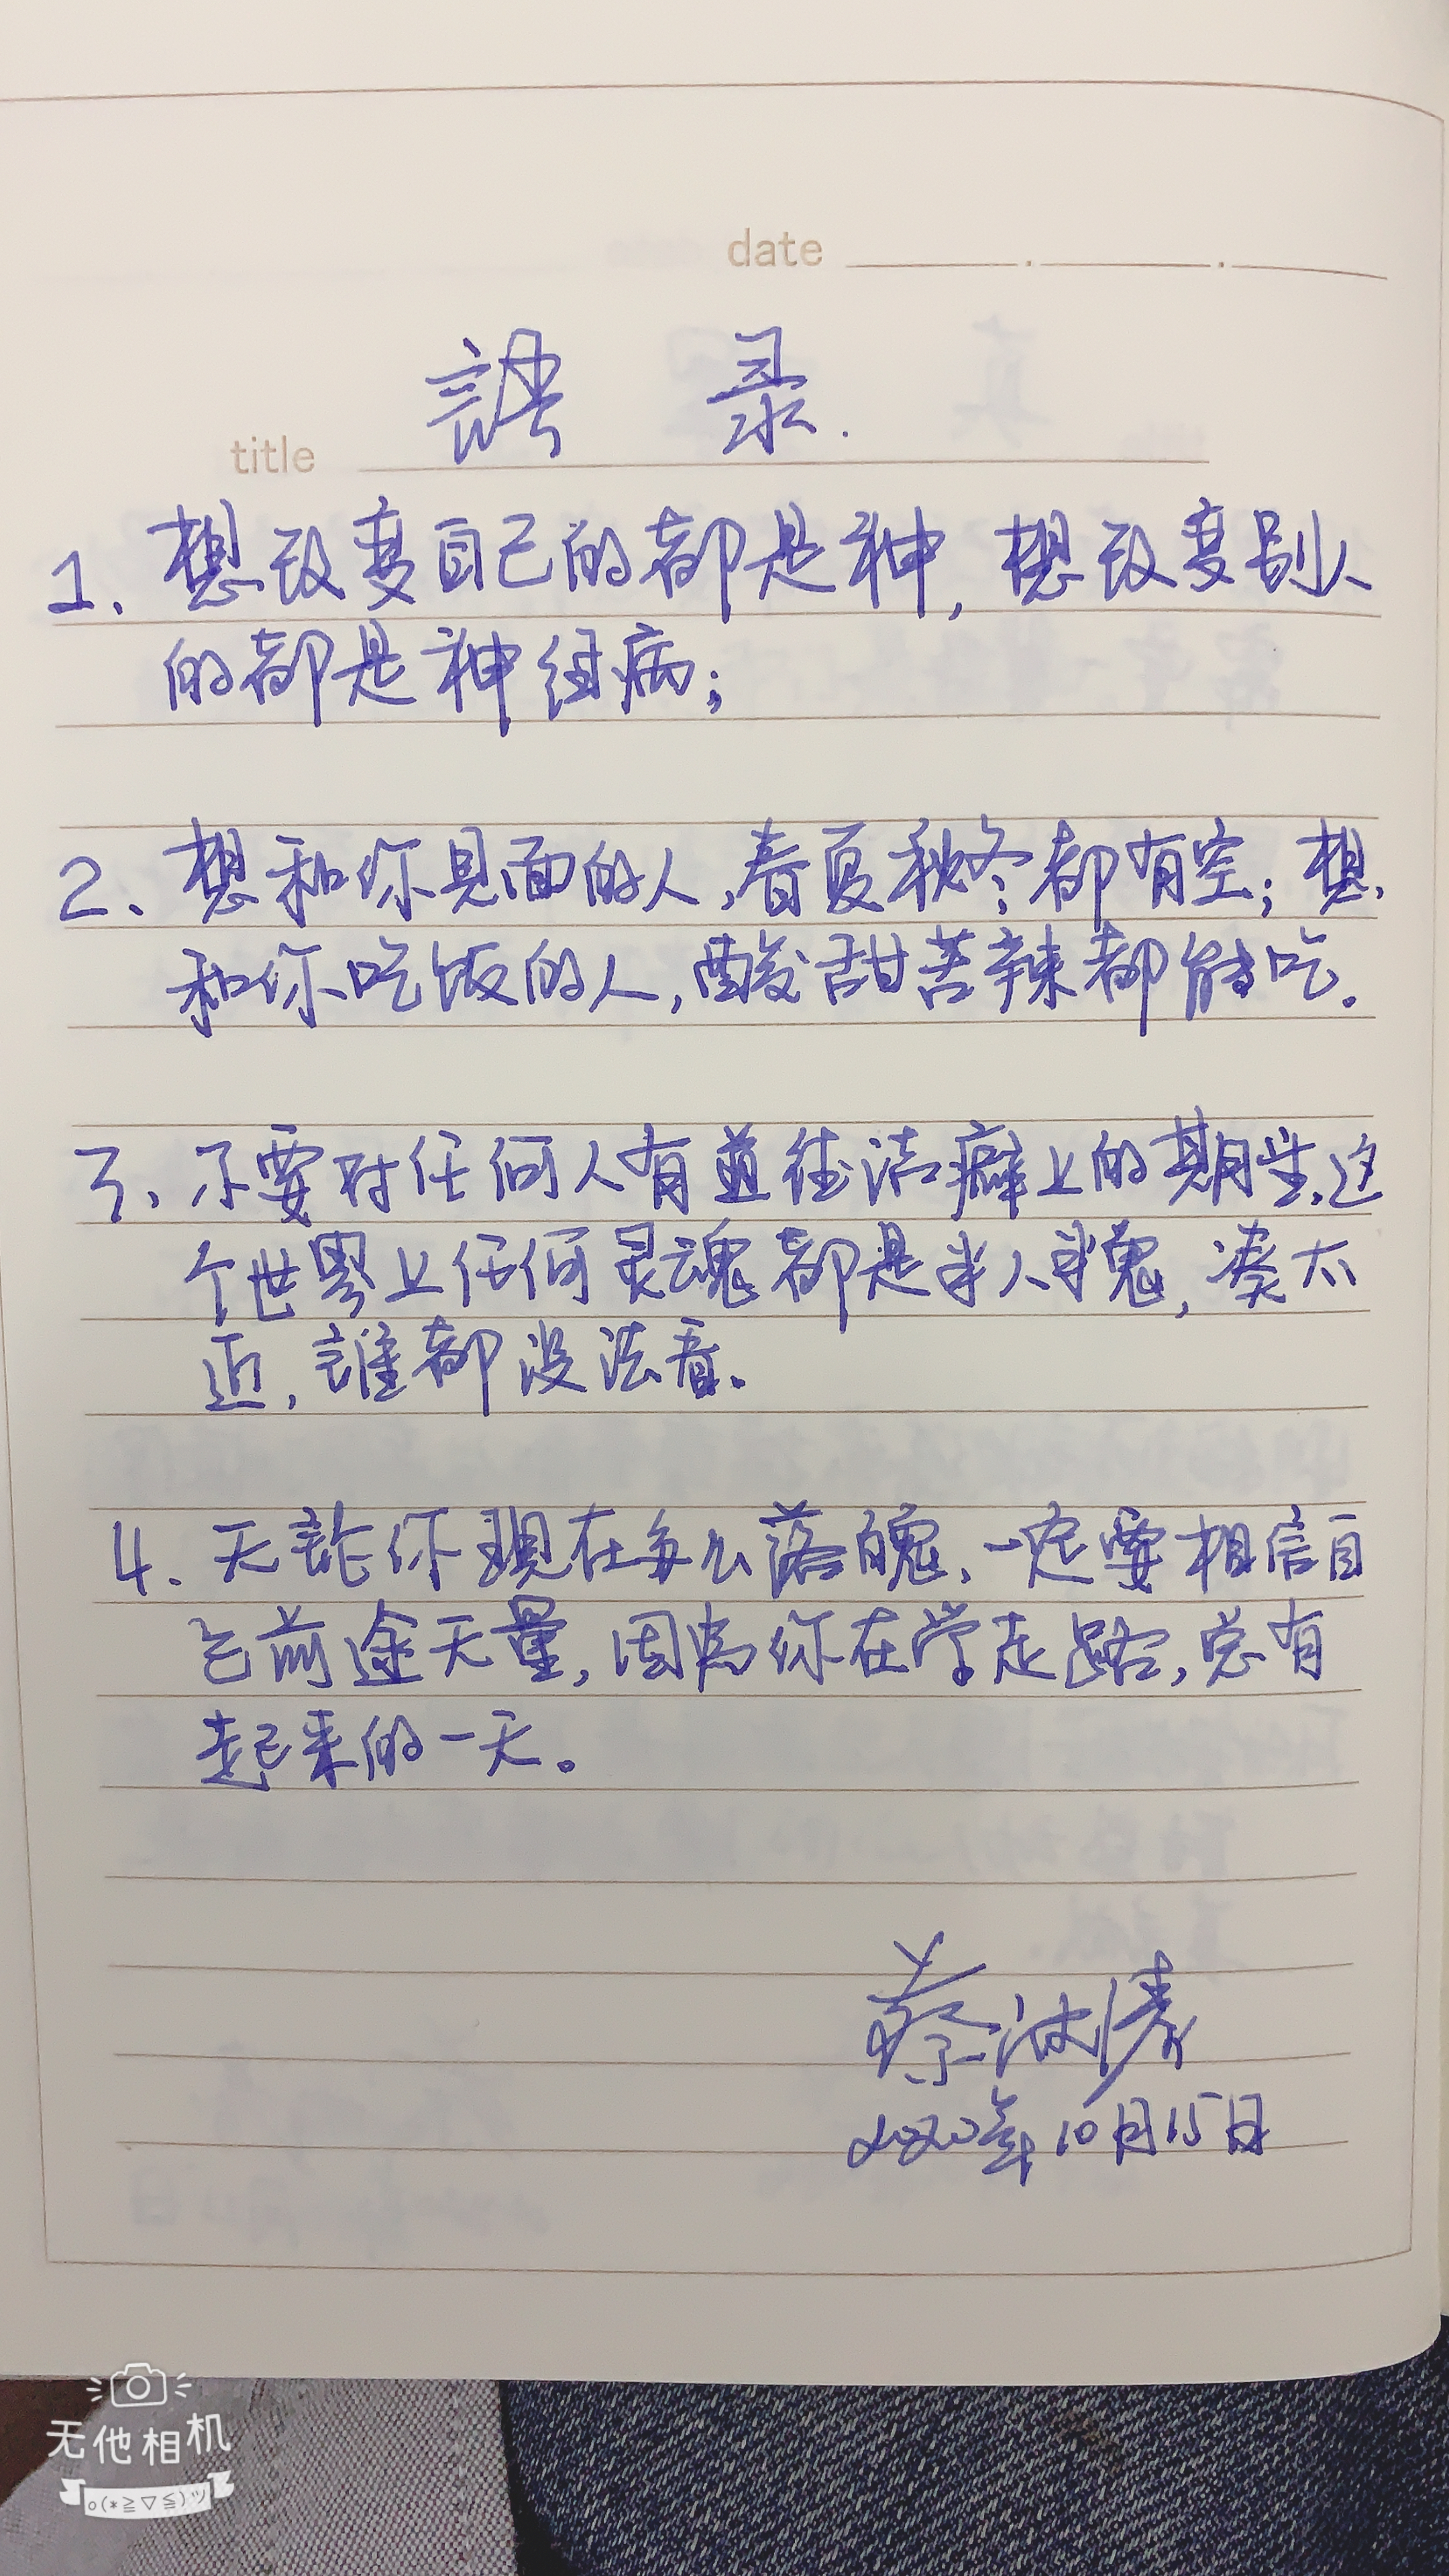 date
語 录.
title
1、想改变自己的都是神,想改变别人
的都是神经病;
2、想和你见面的人,春夏秋冬都有空;想
和你吃饭的人,酸甜苦辣都能吃.
3、不要对任何人有道德洁癖上的期望,这
个世界上任何灵魂都是半人半鬼,凑太
近,誰都没法看.
4、无論你现在多么落魄,一定要相信自
己前途无量,因为你在学走路,总有
起来的一天。
蔡波涛
2020年10月15日
无他相机
o(*≧▽≦)ツ